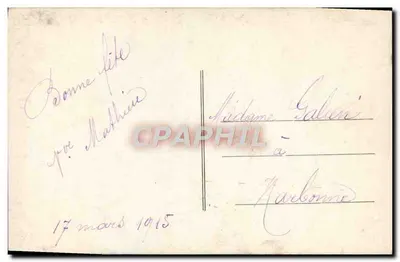 Bonne fête
Mathieu
17 mars 1915
Madame
à
Narbonne
CPAPHIL.COM